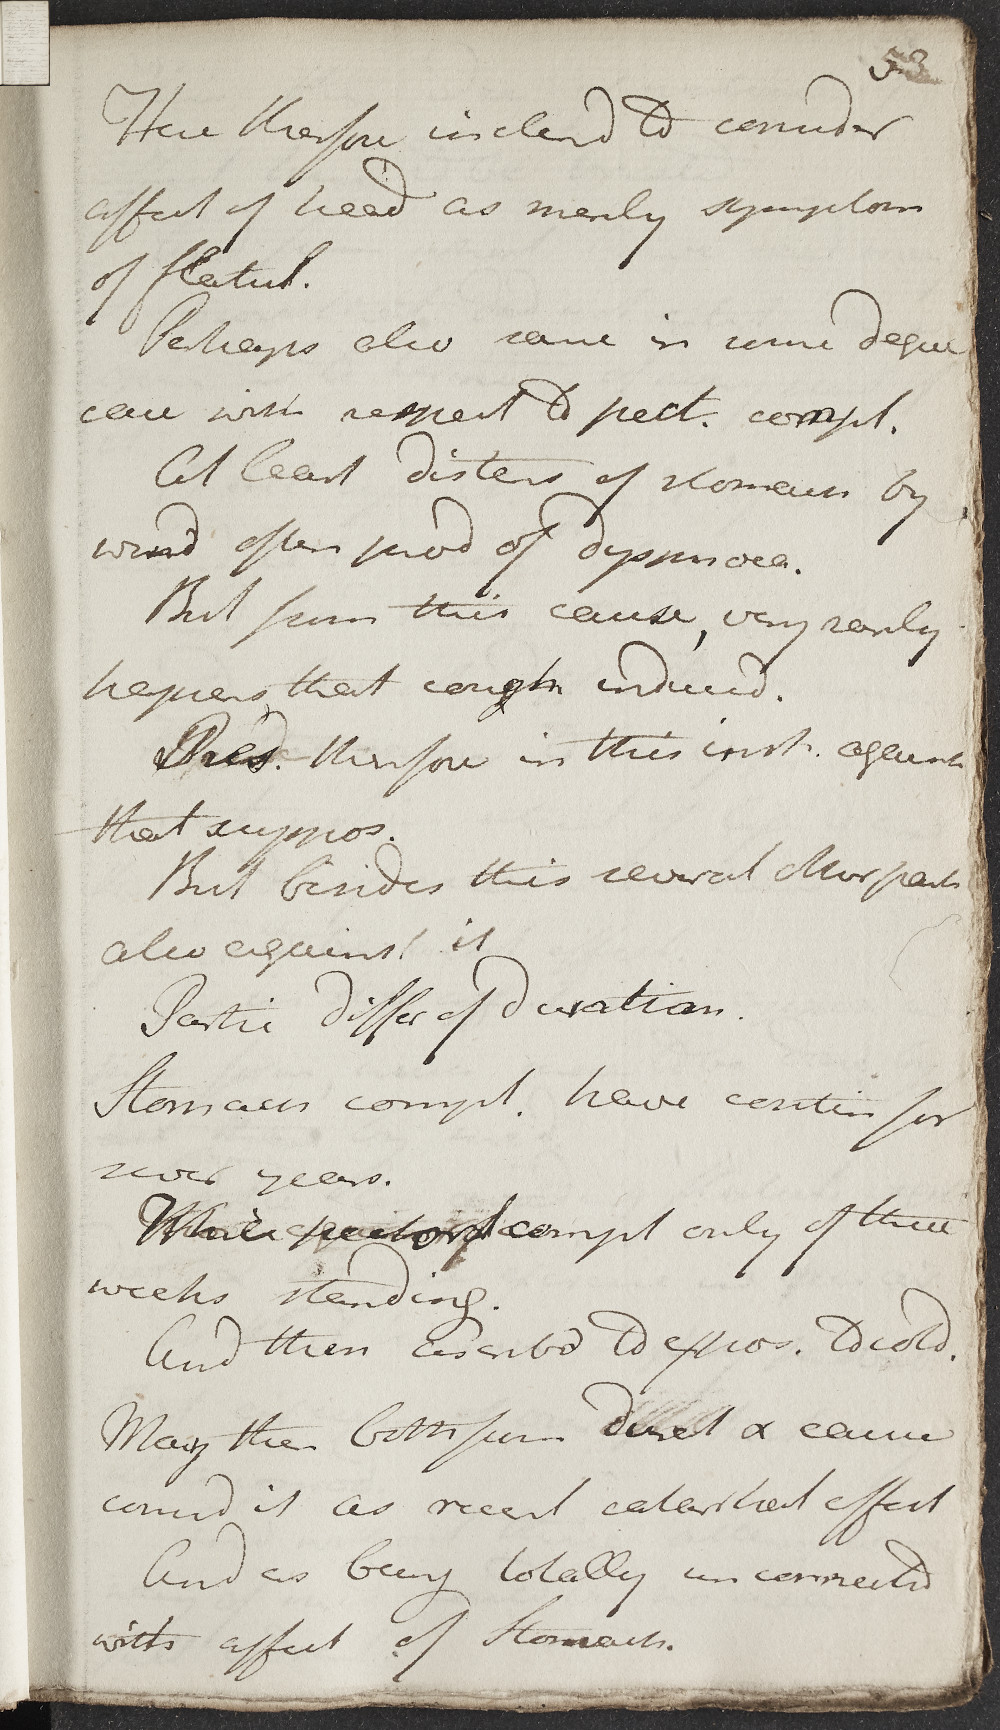 53
Here therefore inclend to consider
affect of head as merely symptom
of flatul.
Perhaps also same in some degree
case with respect to pect. compl.
At least distens of stomach by
wind often prod of dyspnoea.
But from this cause, very rarely
happens that cough induced.
Pres. therefore in this inst. against
that suppos.
But besides this several other parts
also against it
Partic differ of duration.
Stomach compl. have contin for
sever years.
While pectoral compl only of three
weeks standing.
And then ascribd to expos. to cold.
May then both from durat & cause
consid it as recent catarrhal affect
And as being totally unconnected
with affect of Stomach.